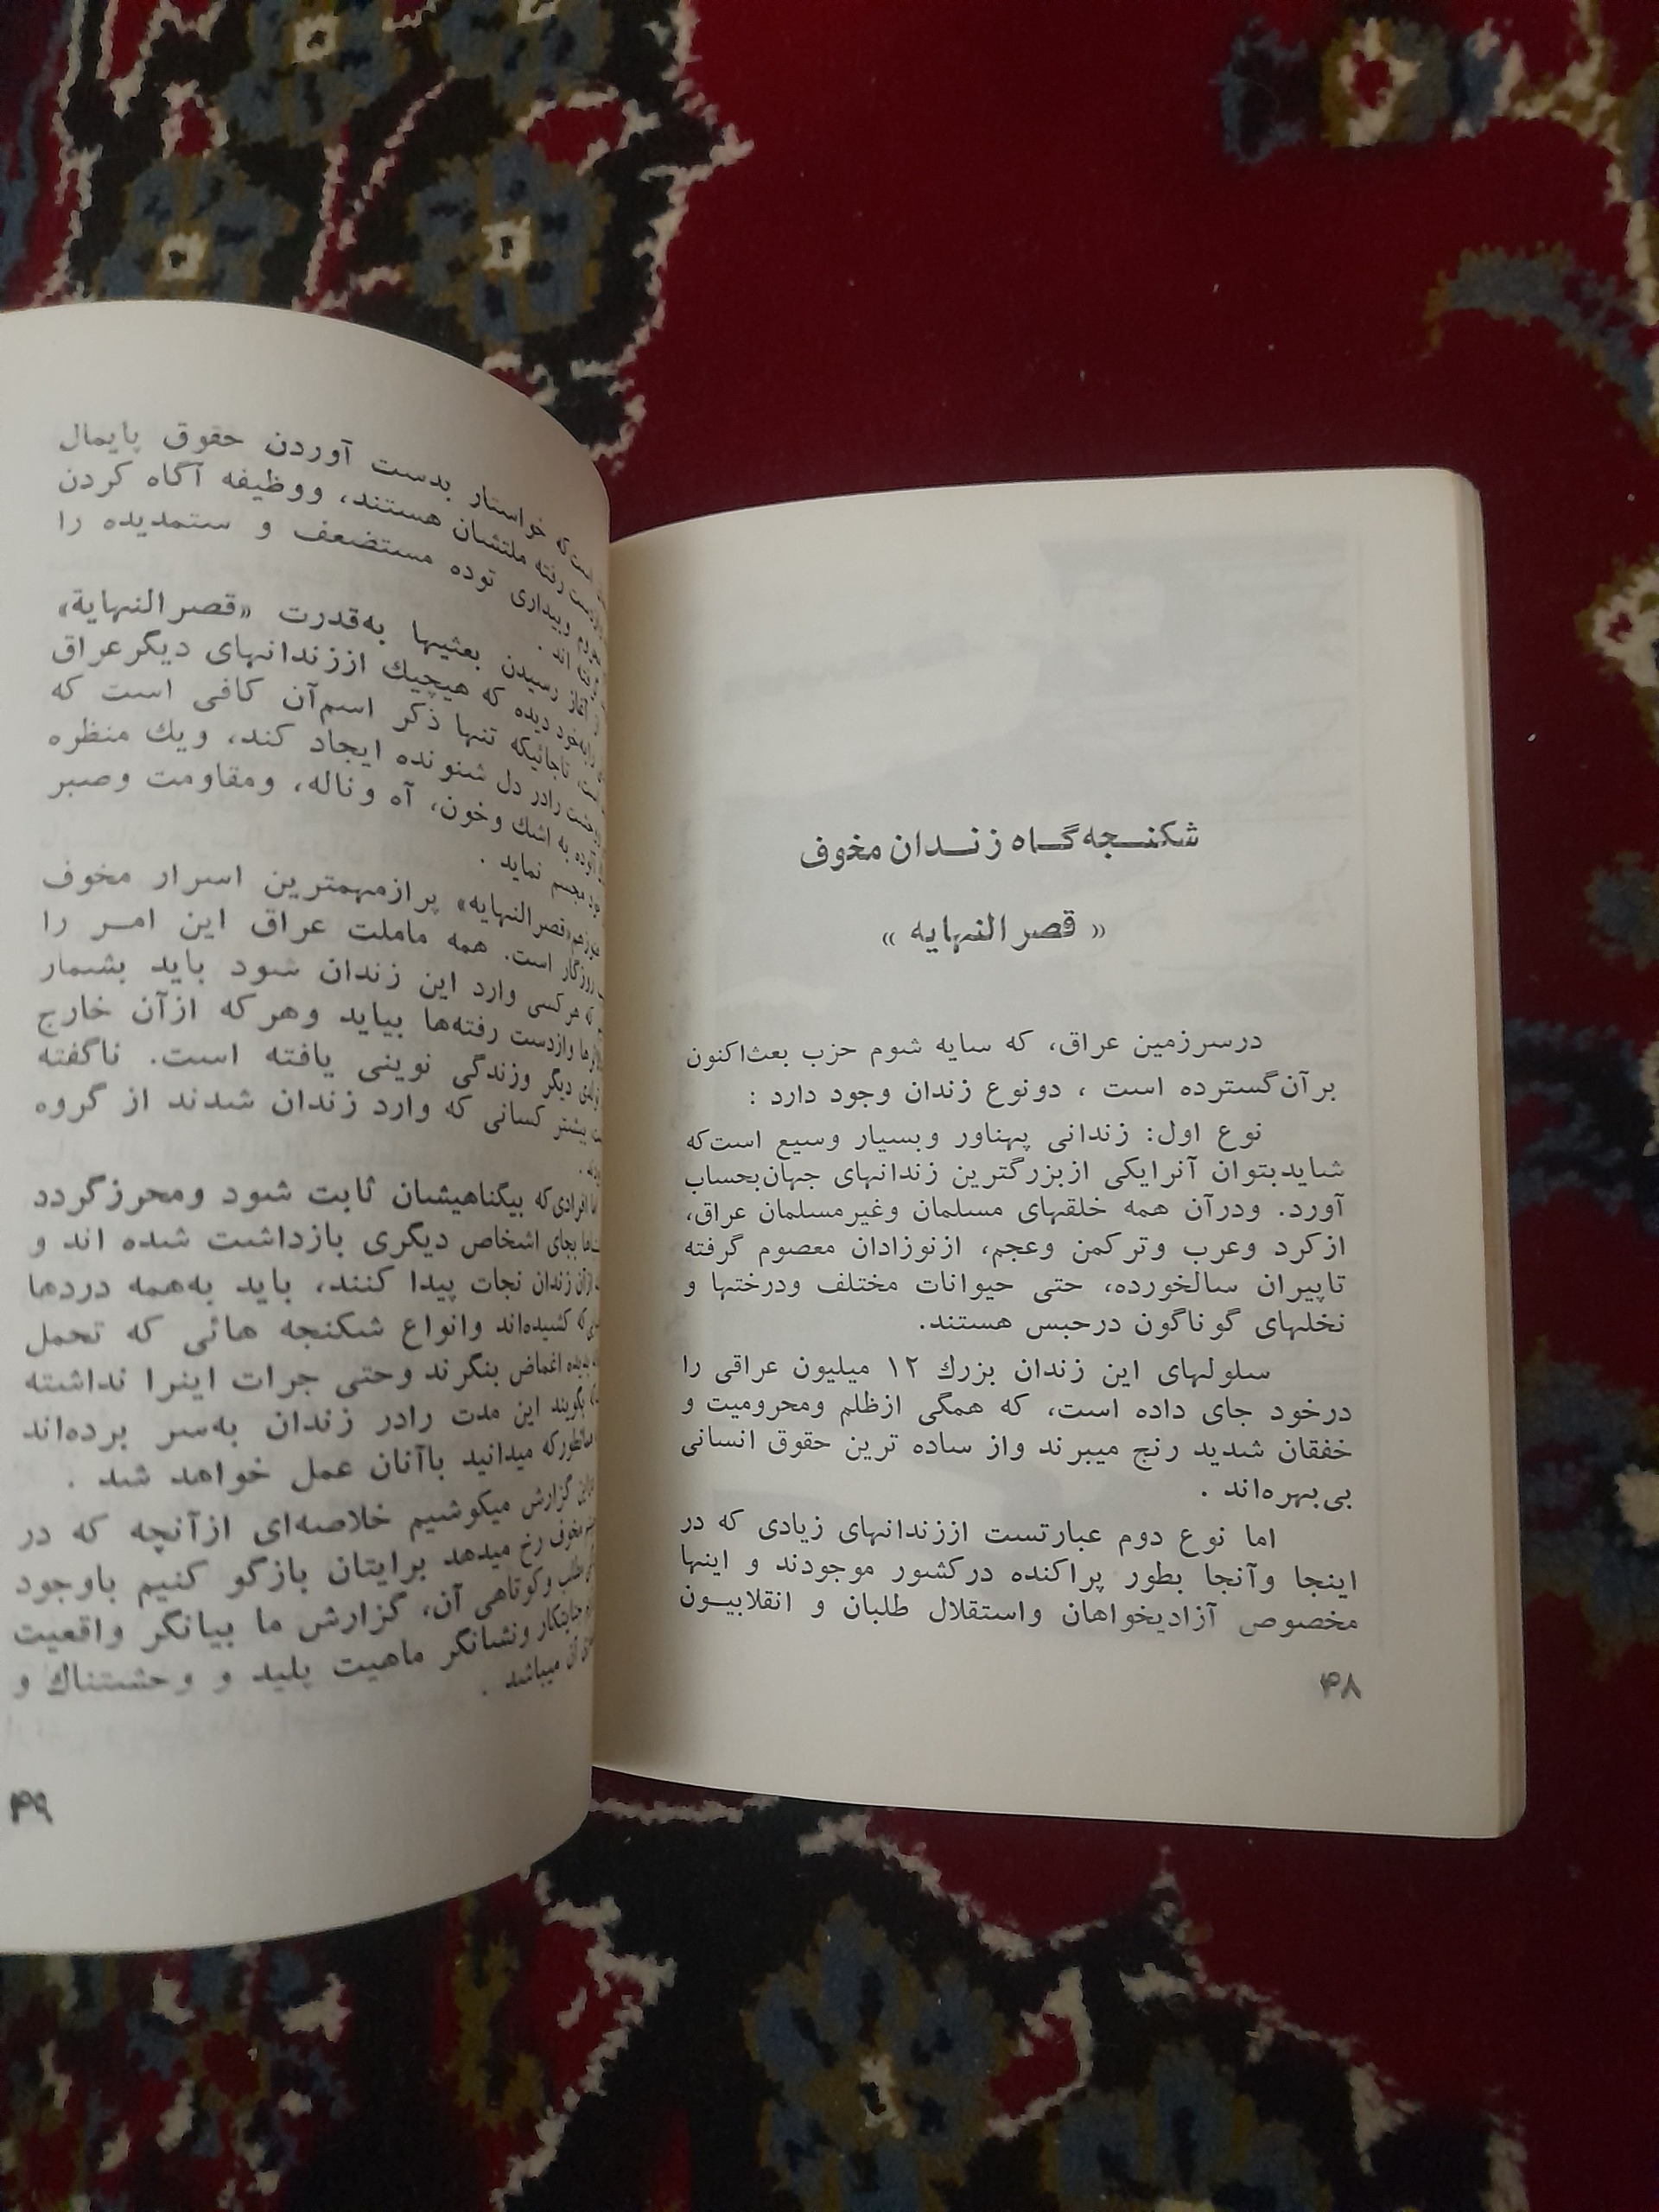 شکنجه‌گاه زندان مخوف
« قصر النهایه »
درسرزمین عراق، که سایه شوم حزب بعث‌اکنون
برآن‌گسترده است ، دونوع زندان وجود دارد :
نوع اول: زندانی پهناور وبسیار وسیع است‌که
شایدبتوان آنرایکی ازبزرگترین زندانهای جهان‌بحساب
آورد. ودرآن همه خلقهای مسلمان وغیرمسلمان عراق،
ازکرد وعرب وترکمن وعجم، ازنوزادان معصوم گرفته
تاپیران سالخورده، حتی حیوانات مختلف ودرختها و
نخلهای گوناگون درحبس هستند.
سلولهای این زندان بزرك ۱۲ میلیون عراقی را
درخود جای داده است، که همگی ازظلم ومحرومیت و
خفقان شدید رنج میبرند واز ساده ترین حقوق انسانی
بی‌بهره‌اند .
اما نوع دوم عبارتست اززندانهای زیادی که در
اینجا وآنجا بطور پراکنده درکشور موجودند و اینها
مخصوص آزادیخواهان واستقلال طلبان و انقلابیون
۴۸
است‌که خواستار بدست آوردن حقوق پایمال
رفته ملتشان هستند، ووظیفه آگاه کردن
وبیداری توده مستضعف و ستمدیده را
اند .
آغاز رسیدن بعثیها به‌قدرت «قصر النهایة»
بخود دیده که هیچیك اززندانهای دیگرعراق
تاجائیکه تنها ذکر اسم‌آن کافی است که
رادر دل شنونده ایجاد کند، ویك منظره
آلوده به اشك وخون، آه وناله، ومقاومت وصبر
مجسم نماید .
«قصر النهایه» پرازمهمترین اسرار مخوف
روزگار است. همه ماملت عراق این امر را
که هرکسی وارد این زندان شود باید بشمار
وازدست رفته‌ها بیاید وهرکه ازآن خارج
دیگر وزندگی نوینی یافته است. ناگفته
بیشتر کسانی که وارد زندان شدند از گروه
افرادی‌که بیگناهیشان ثابت شود ومحرزگردد
بجای اشخاص دیگری بازداشت شده اند و
ازآن زندان نجات پیدا کنند، باید به‌همه دردها
که کشیده‌اند وانواع شکنجه هائی که تحمل
بدیده اغماض بنگرند وحتی جرات اینرا نداشته
بگویند این مدت رادر زندان به‌سر برده‌اند
میدانید باآنان عمل خواهد شد .
گزارش میکوشیم خلاصه‌ای ازآنچه که در
مخوفی رخ میدهد برایتان بازگو کنیم باوجود
وکوتاهی آن، گزارش ما بیانگر واقعیت
جنایتکار ونشانگر ماهیت پلید و وحشتناك و
آن میباشد .
۴۹